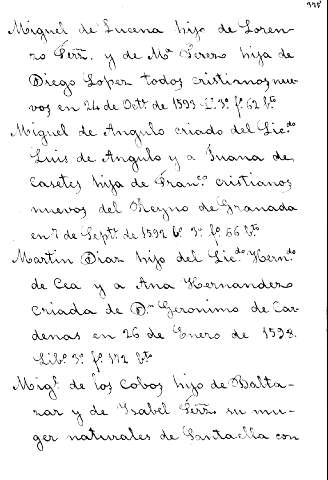 Miguel de Lucena hijo de Loren-
zo Perz. y de Mª Perez hija de
Diego Lopez todos cristianos nue-
vos en 24 de Octe de 1599 Lº 3º fº 62 vto
Miguel de Angulo criado del Licdo
Luis de Angulo y a Juana de
Casetes hija de Franco cristianos
nuevos del Reyno de Granada
en 7 de Septe de 1592 Lº 3º fº 66 vto
Martin Diaz hijo del Licdo Herndo
de Cea y a Ana Hernandez
criada de Dn Geronimo de Car-
denas en 26 de Enero de 1598.
Libº 3º fº 172 vto
Migl de los Cobos hijo de Balta-
zar y de Isabel Perz su mu-
ger naturales de Santaella con